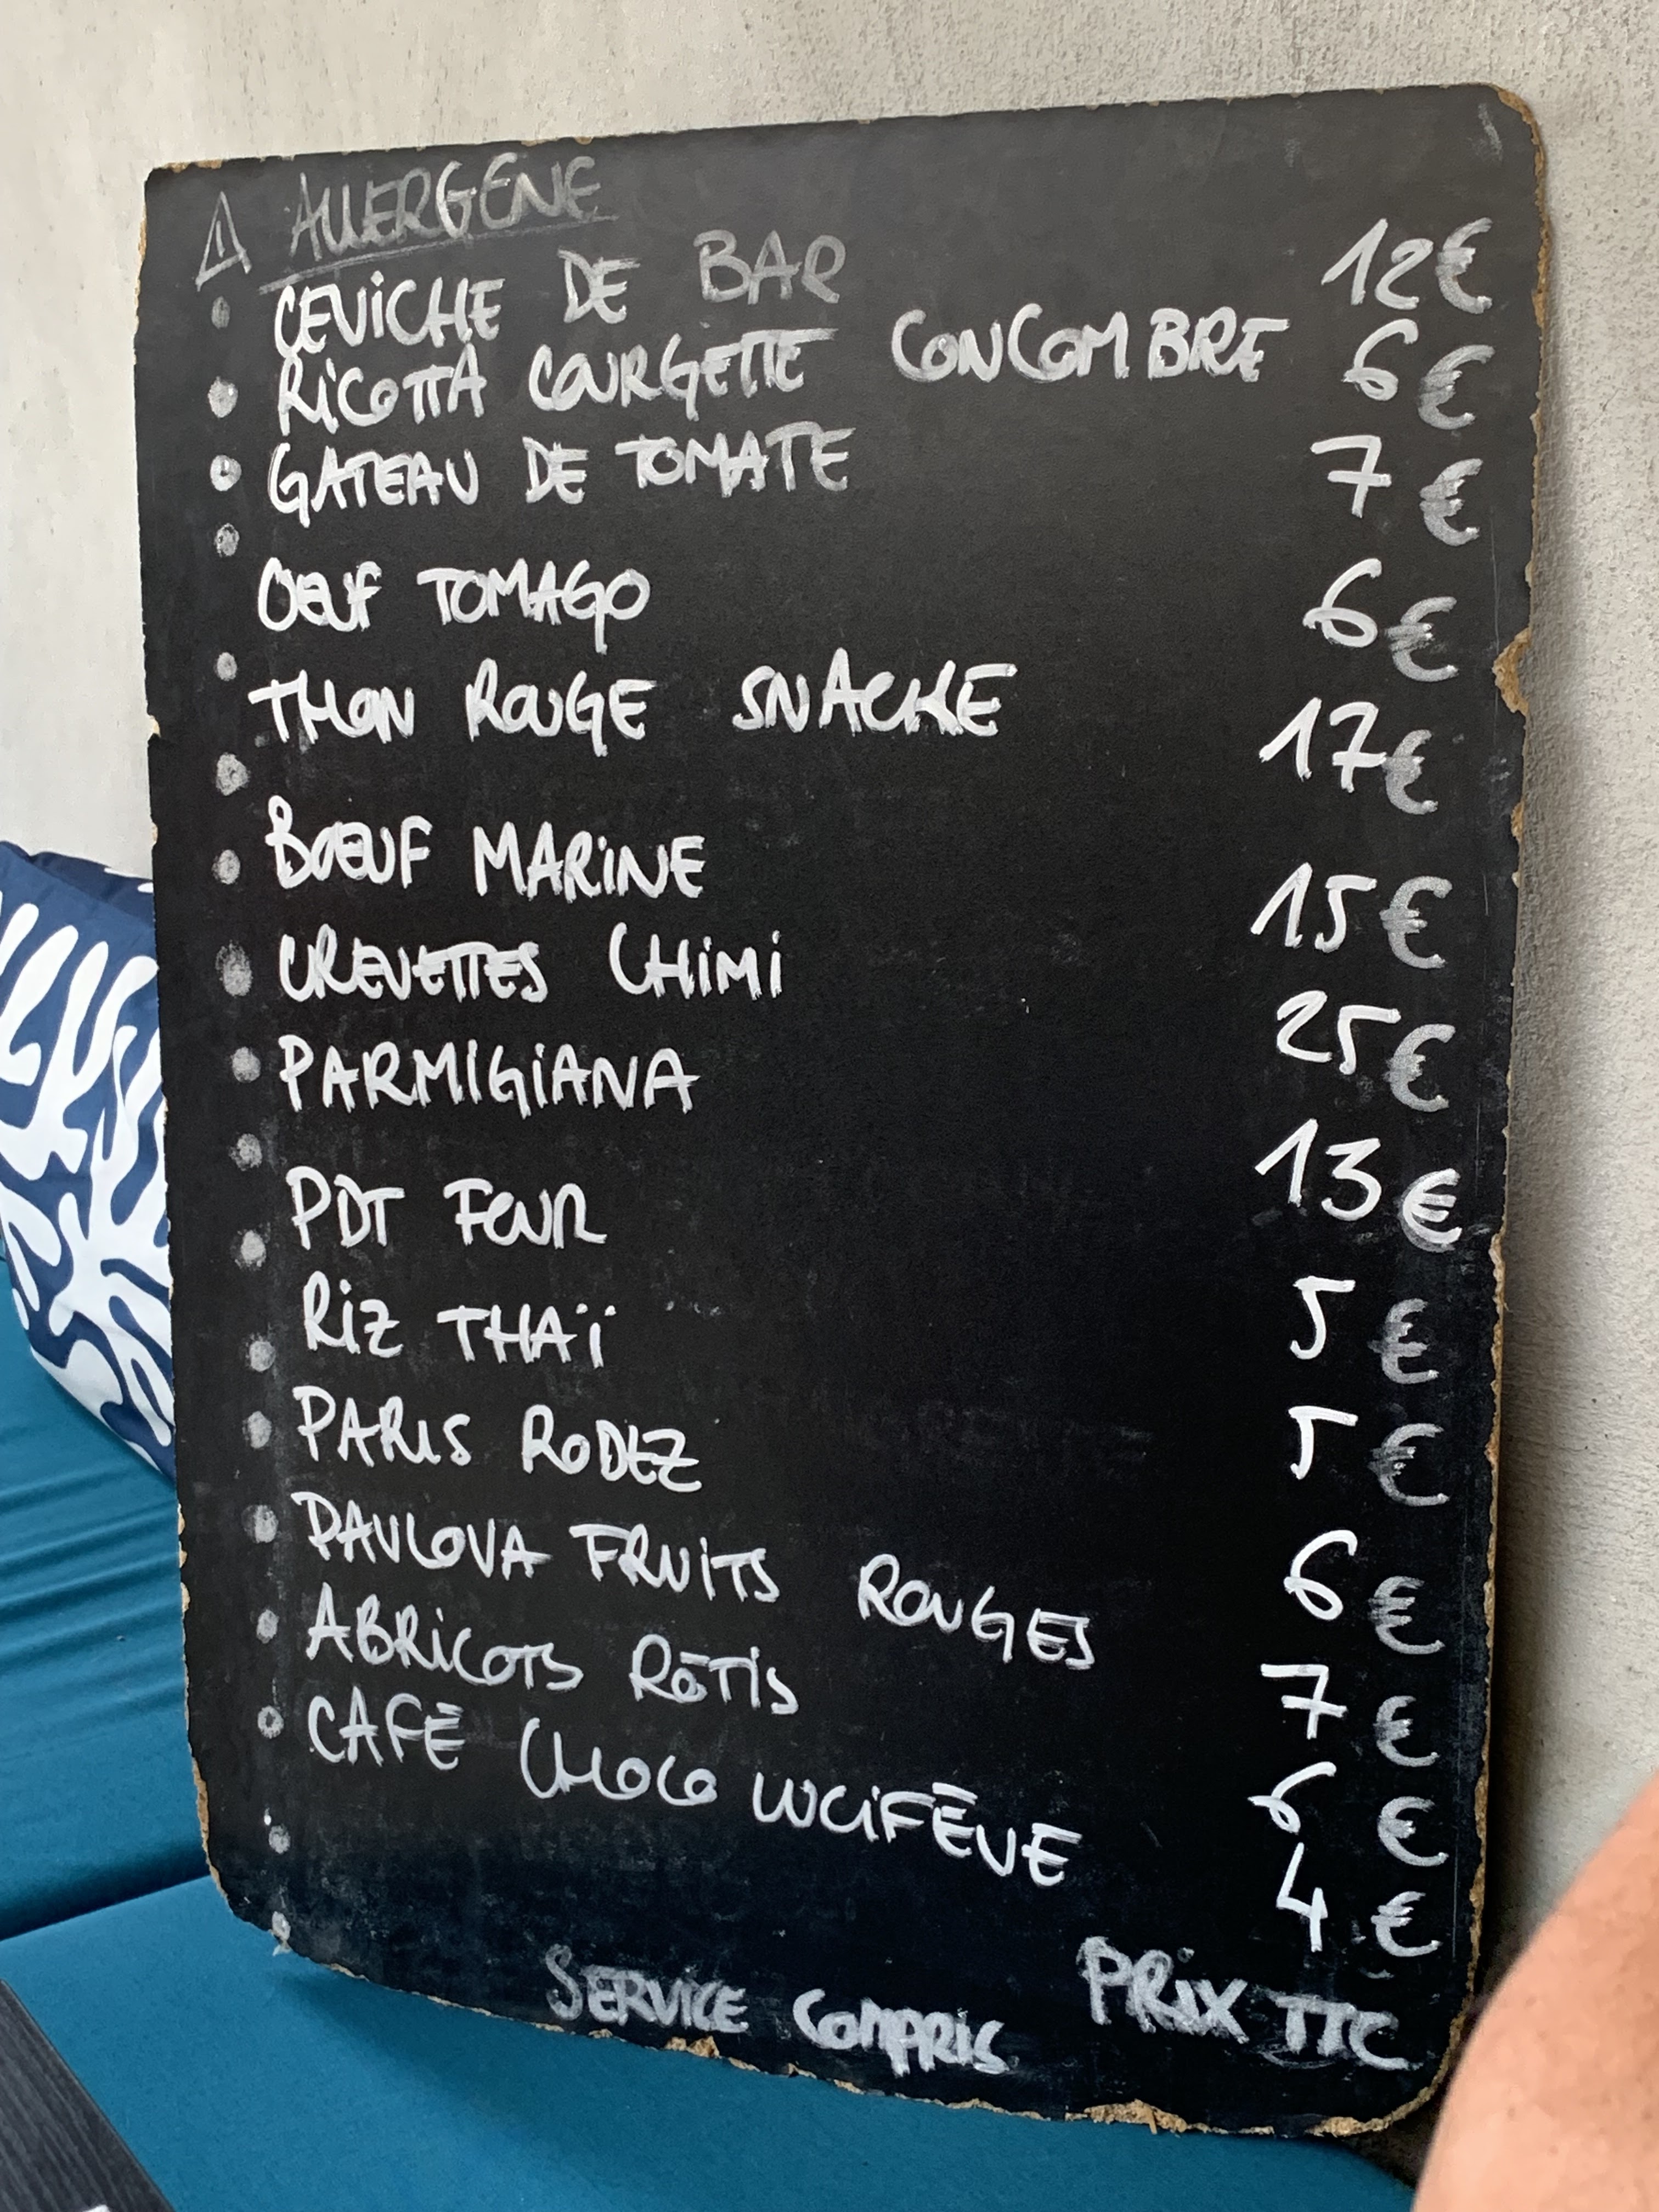 ⚠ ALLERGENE
CEVICHE DE BAR 12€
RICOTTA COURGETTE CONCOMBRE 6€
GATEAU DE TOMATE 7€
OEUF TOMAGO 6€
THON ROUGE SNACKE 17€
BOEUF MARINE 15€
CREVETTES CHIMI 25€
PARMIGIANA 13€
PDT FOUR 5€
RIZ THAÏ 5€
PARIS RODEZ 6€
PAVLOVA FRUITS ROUGES 7€
ABRICOTS RÔTIS 6€
CAFÉ CHOCO LUCIFÈVE 4€
SERVICE COMPRIS PRIX TTC